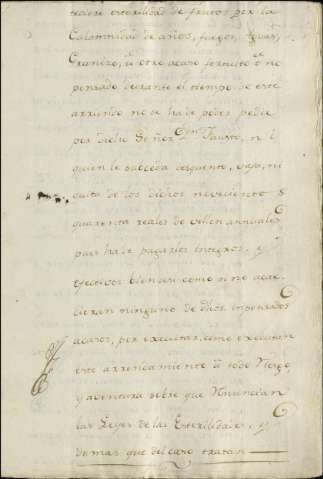 esterilidad de frutos por la
Calamidad de años, fuegos, Aguas,
Granizo, u otro acaso fortuito o no
pensado durante el tiempo de este
arriendo no se ha de poder pedir
por dicho Señor Dn Fausto, ni
quien le suceda descuento, vaja, ni
quita de los dichos novecientos
quarenta reales de vellon annuales
pues ha de pagarles integros, y
efectivos bien asi como si no acae-
cieran ninguno de dhos
acasos, por executar, como executan
este arrendamiento a todo riesgo,
y aventura sobre que renuncian
las Leyes de las Esterilidades, y
demas que del caso tratan